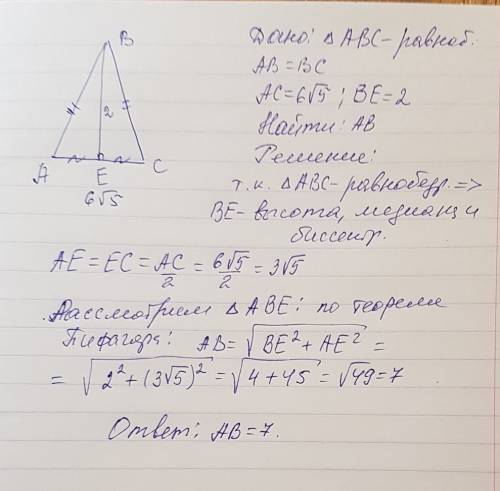 Дано: △ABC-равноб.
AB=BC
AC=6√5; BE=2
Найти: AB
Решение:
т.к. △ABC-равнобедр. =>
BE-высота, медиана и
биссектр.
B
2
A
E
C
6√5
AE=EC=AC/2=6√5/2=3√5
Рассмотрим △ABE: по теореме
Пифагора: AB=√(BE²+AE²)=
=√(2²+(3√5)²)=√(4+45)=√49=7.
Ответ: AB=7.